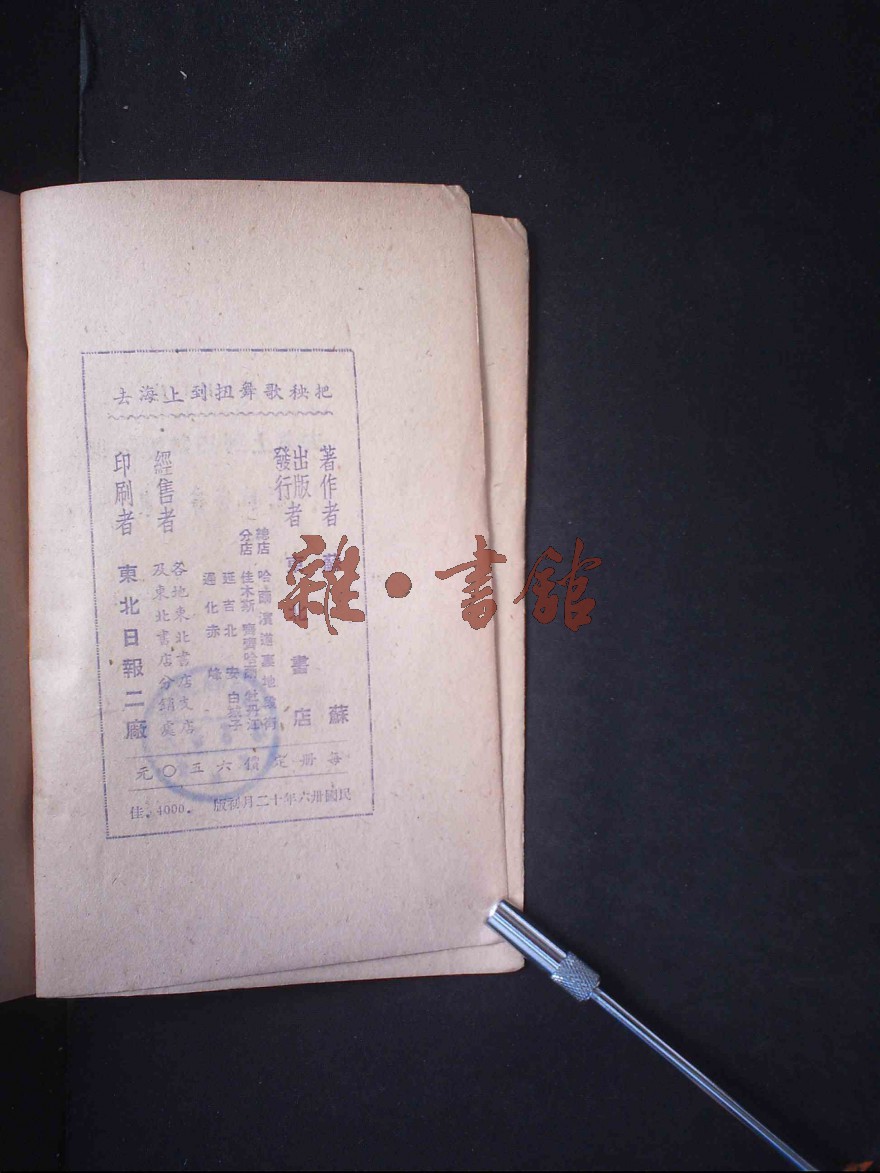 把秧歌舞扭到上海去
著作者 蘇 蘇
出版者
發行
東北書店
總店 哈爾濱道裏地段街
分店 佳木斯 齊齊哈爾 牡丹江
延吉 北安 白城子
通化 赤峰
經售者 各地東北書店支店
及東北書店分銷處
印刷者 東北日報二廠
每冊定價六五〇元
民國卅六年十二月初版 佳.4000.
雜·書館